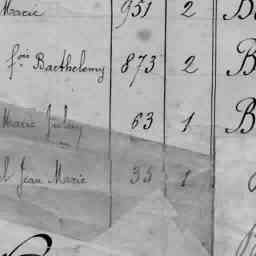 Marie 951 2 B
fois Barthelemy 873 2 B
Marie 63 1 B
l Jean Marie 35 1